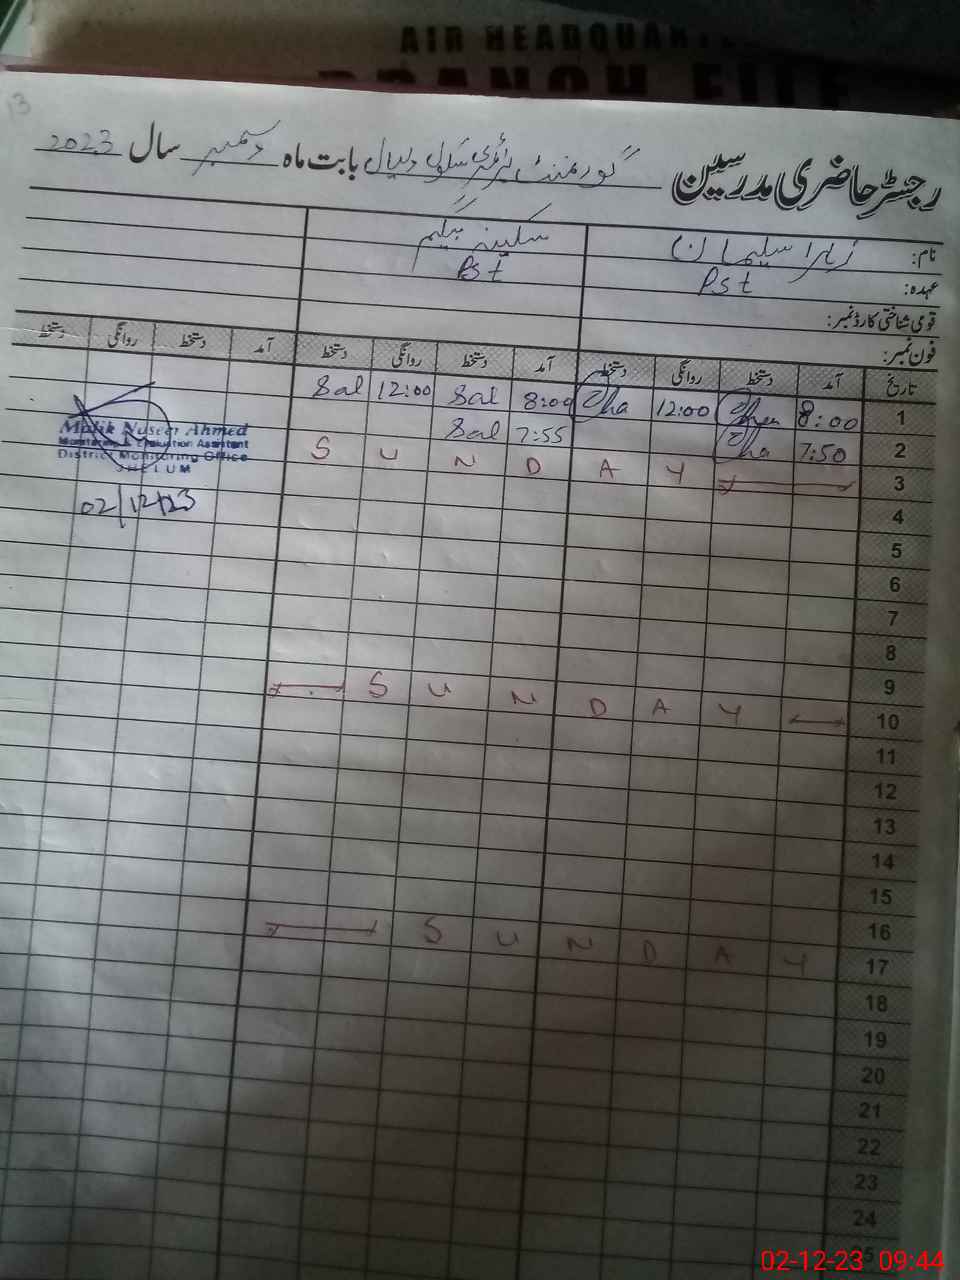 AIR HEADQUAR
BRANCH FILE
13
رجسٹر حاضری مدرسین گورنمنٹ پرائمری سکول دیال بابت ماہ دسمبر سال 2023
نام: زہرا سلیمان سکینہ بیگم
عہدہ: Pst Pst
قومی شناختی کارڈ نمبر:
فون نمبر:
تاریخ آمد دستخط روانگی دستخط آمد دستخط روانگی دستخط آمد دستخط روانگی دستخط
1 8:00 12:00 Zha 8:00 Sal 12:00 Sal
2 7:50 Zha 7:55 Sal
3 S U N D A Y
4
5
6
7
8
9
10 S U N D A Y
11
12
13
14
15
16
17 S U N D A Y
18
19
20
21
22
23
24
25
Malik Naseer Ahmed
Monitoring & Evaluation Assistant
District Monitoring Office
JHELUM
02/12/23
02-12-23 09:44